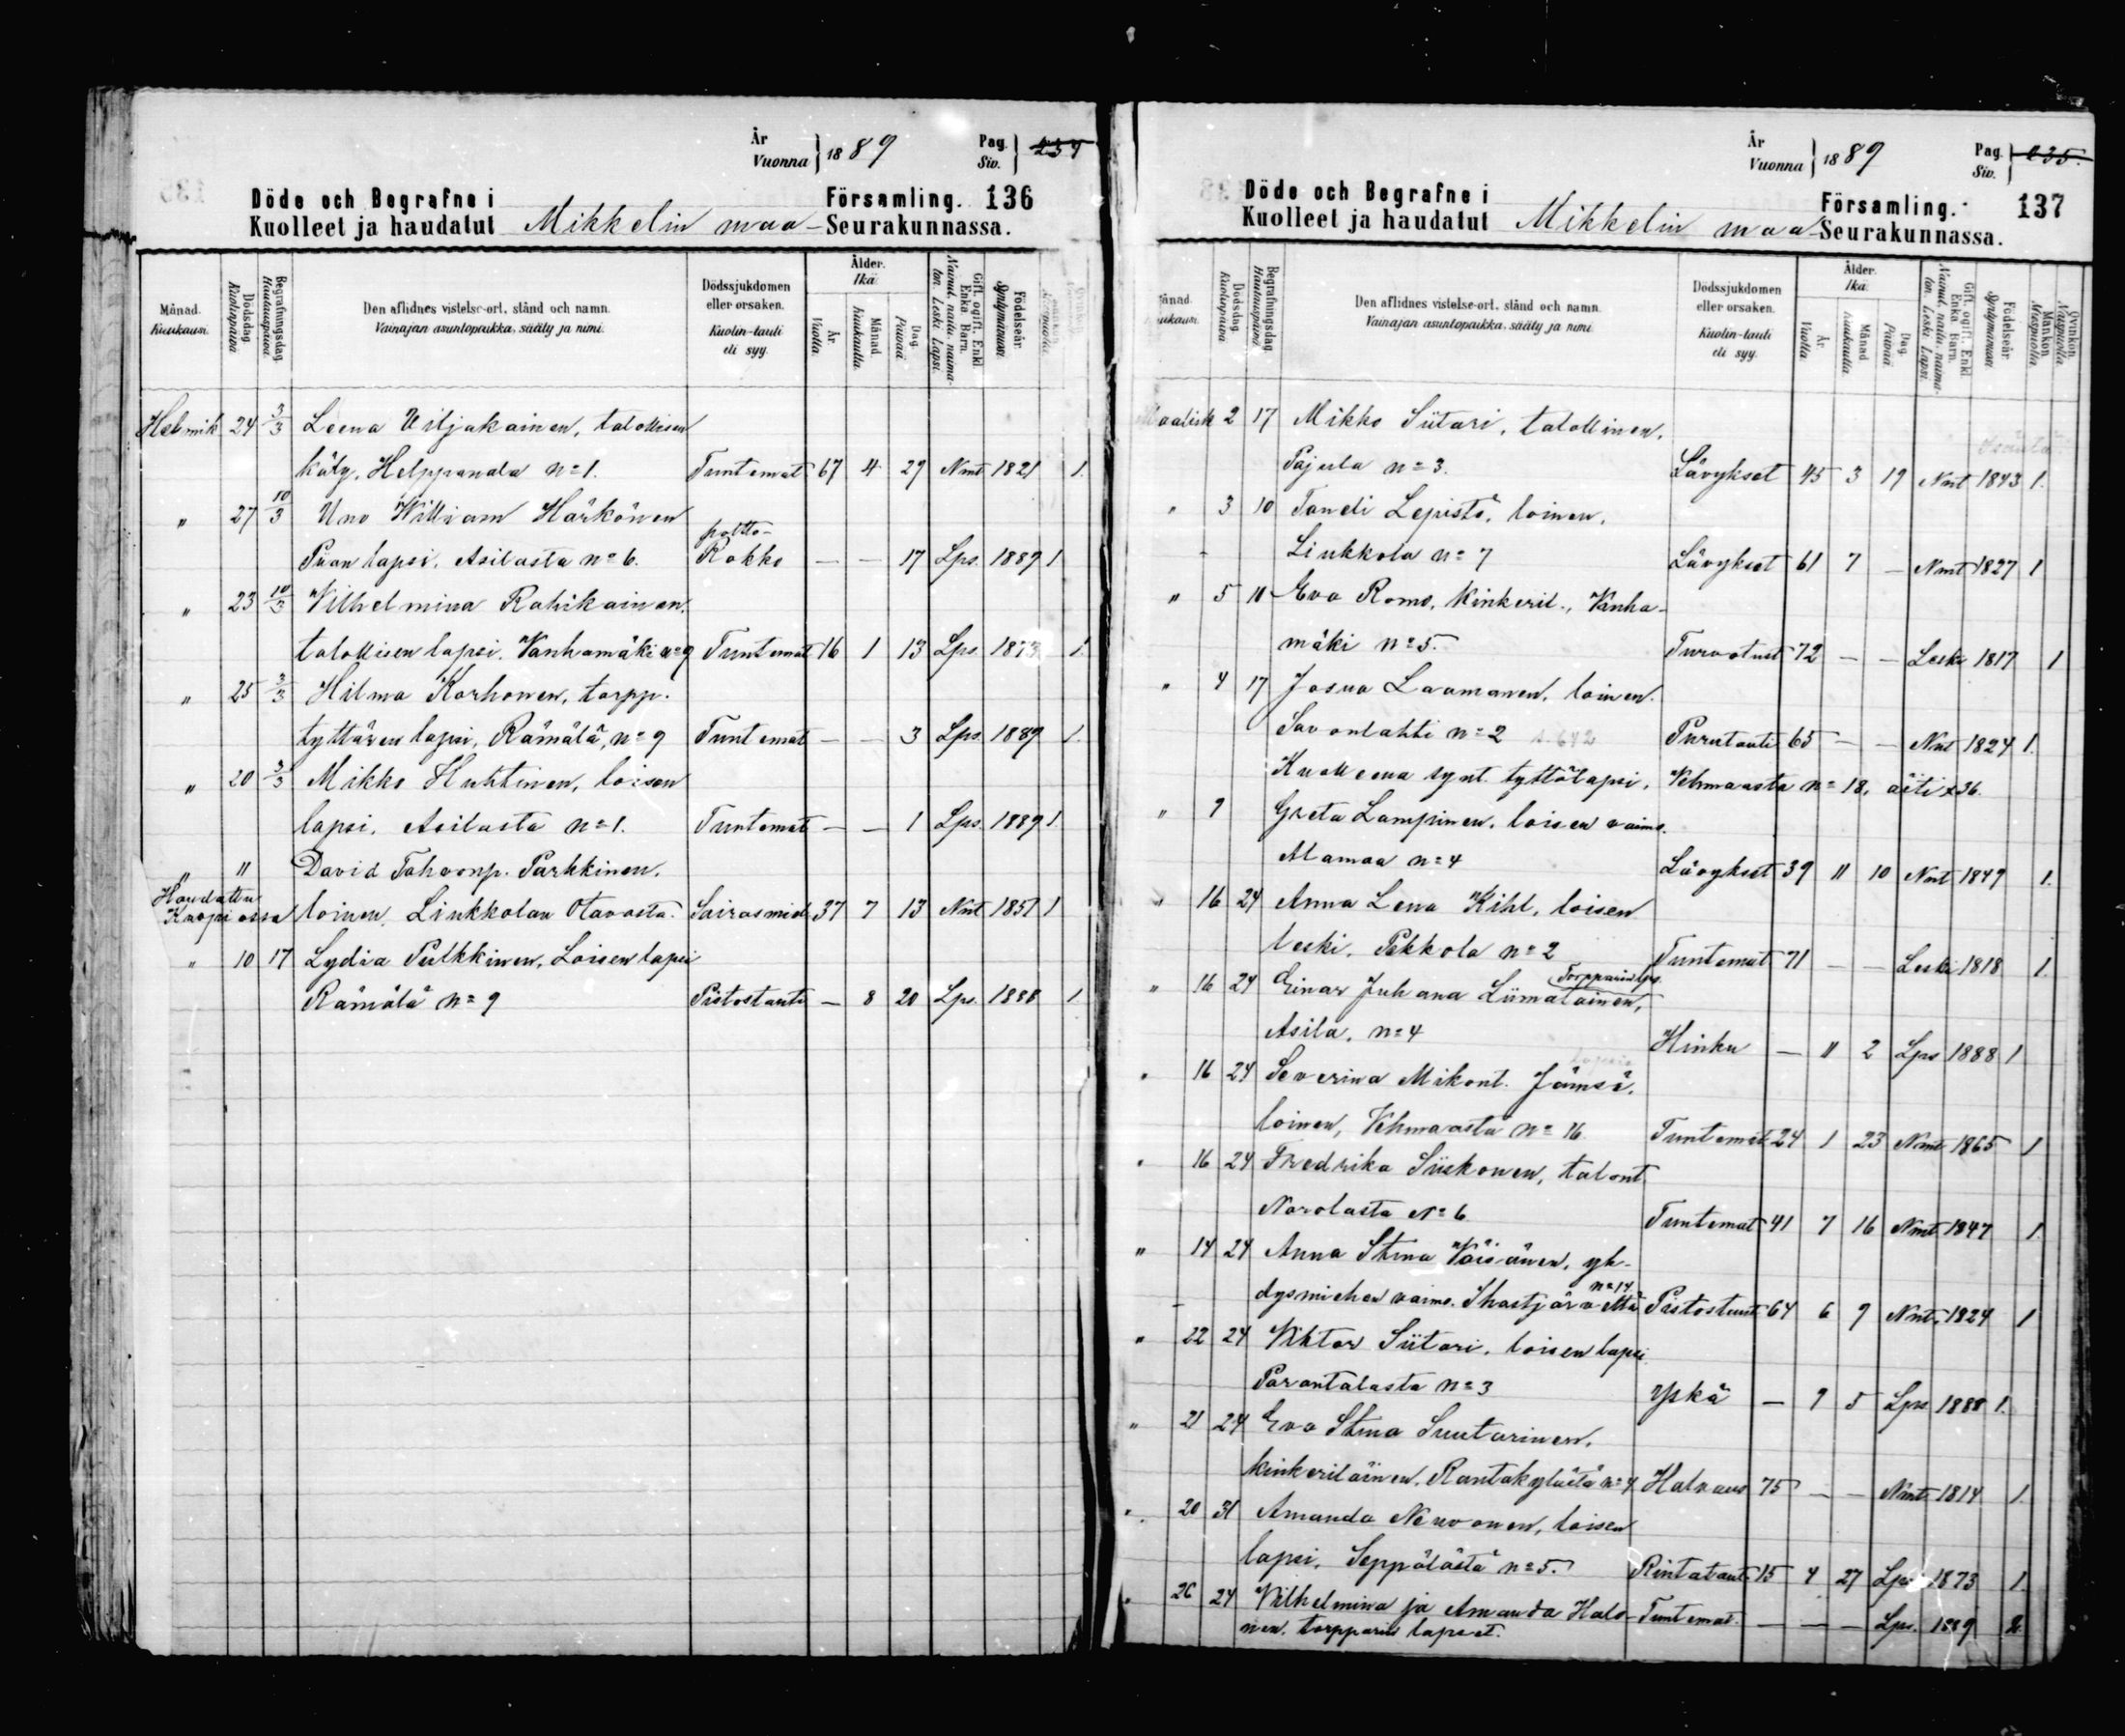 År
Vuonna } 1889
Pag.
Siv. } 237
Döde och Begrafne i Församling. 136
Kuolleet ja haudatut Mikkelin maa- Seurakunnassa.
Månad. Kuukausi.
Dödsdag. Kuolinpäivä
Begrafningsdag. Hautauspäivä.
Den aflidnes vistelse-ort, stånd och namn.
Vainajan asuntopaikka, sääty ja nimi.
Dödssjukdomen eller orsaken.
Kuolin-tauti eli syy.
Ålder. Ikä.
År. Vuotta.
Månad. Kuukautta.
Dag. Päivää
Gift. ogift. Enkl. Enka. Barn.
Nainut. naitu. naimaton. Leski. Lapsi.
Födelseår. Syntymävuosi.
Helmik 24 3/3 Leena Viljakainen, talollisen
käly, Helppanala n=1. Tuntemat 67 4 29 Nnt 1821 1.
" 27 10/3 Uno William Härkönen
Piian lapsi, Asilasta n=6. poltto-Rokko — — 17 Lps. 1889 1
" 23 10/3 Vilhelmina Rahikainen,
talollisen lapsi. Vanhamäki n=9 Tuntemat 16 1 13 Lps. 1873 1.
" 25 3/3 Hilma Korhonen, torpp.
tyttären lapsi, Rämälä, n=9 Tuntemat — — 3 Lps. 1889 1.
" 20 3/3 Mikko Huhtinen, loisen
lapsi, Asilasta n=1. Tuntemat — — 1 Lps. 1889 1.
" " David Tahvonp. Parkkinen,
Haudattu Kuopiossa loinen, Liukkolan Otavasta. Sairasmiel. 37 7 13 Nnt 1851 1
" 10 17 Lydia Pulkkinen, Loisen lapsi
Rämälä n=9 Pistostauti — 8 20 Lps. 1888 1
År
Vuonna } 1889
Pag.
Siv. } 235.
Döde och Begrafne i Församling. 137
Kuolleet ja haudatut Mikkelin maa- Seurakunnassa.
Dödsdag. Kuolinpäivä.
Begrafningsdag. Hautauspäivä.
Den aflidnes vistelse-ort, stånd och namn.
Vainajan asuntopaikka, sääty ja nimi
Dödssjukdomen eller orsaken.
Kuolin-tauti eli syy.
Ålder. Ikä.
År. Vuotta.
Månad. Kuukautta.
Dag. Päivää
Gift. ogift. Enkl. Enka. Barn.
Nainut. naitu. naimaton. Leski. Lapsi.
Födelseår. Syntymävuosi
Mankön. Miespuolia.
Qvinkön. Naispuolia.
Maalisk 2 17 Mikko Siitari, talollinen,
Pajula n=3. Lävykset 45 3 19 Nnt 1843 1.
" 3 10 Taneli Lepistö, loinen,
Liukkola n=7 Lävykset 61 7 — Nnt 1827 1
" 5 10 Eva Romo, Kinkeril., Vanha-
mäki n=5. Turvotust 72 — — Leski 1817 1
" 4 17 Josua Laamanen, loinen.
Savonlahti n=2 s. 642 Purutauti 65 — — Nnt 1824 1.
Kuolleena synt. tyttölapsi, Vehmaasta n=18, äiti x36.
" 9 Greta Lampinen, loisen vaimo.
Alamaa n=4 Lävykset 39 11 10 Nnt 1849 1.
" 16 24 Anna Lena Kihl, loisen
leski, Pekkola n=2 Tuntemat 71 — — Leski 1818 1.
" 16 24 Einar Juhana Liimatainen, Torpparin lps.
Asila, n=4 Hinku — 11 2 Lps 1888 1
" 16 24 Severina Mikont. Jämsä,
loinen, Vehmaasta n=16 Tuntemat 24 1 23 Nmt 1865 1
" 16 24 Fredrika Siiskonen, talont.
Norolasta N=6 Tuntemat 41 7 16 Nmt 1847 1.
" 14 24 Anna Stina Väisänen, yh-
dysmiehen vaimo. Ihastjärveltä n=14. Pistostaut. 64 6 9 Nnt. 1824 1
" 22 24 Viktor Siitari, loisen lapsi
Parantalasta n=3 Yskä — 9 5 Lps 1888 1.
" 21 24 Eva Stina Suutarinen,
kinkeriläinen, Rantakylästä n=4 Halvaus 75 — — Nmt. 1814 1.
" 20 31 Amanda Neuvonen, loisen
lapsi, Seppälästä n=5. Rintataut. 15 4 27 Lps 1873 1.
" 26 24 Vilhelmina ja Amanda Halo- Tuntemat. — — — Lps. 1889 2.
nen, torpparin lapset.